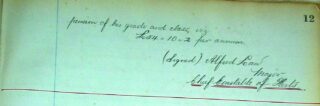 12
pension of his grade and class, viz
£24 = 10 = 2 per annum
(Signed) Alfred Law
Major
Chief Constable of Herts